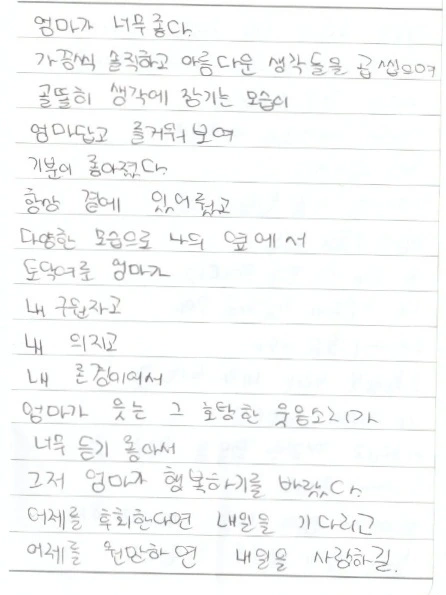 엄마가 너무 좋다.
가끔씩 솔직하고 아름다운 생각들을 곱씹으며
골똘히 생각에 잠기는 모습이
엄마답고 즐거워 보여
기분이 좋아졌다.
항상 곁에 있어줬고
다양한 모습으로 나의 옆에서
토닥여준 엄마가
내 구원자고
내 의지고
내 존경이여서
엄마가 웃는 그 호탕한 웃음소리가
너무 듣기 좋아서
그저 엄마가 행복하기를 바랬다.
어제를 후회한다면 내일을 기다리고
어제를 원망하면 내일을 사랑하길.